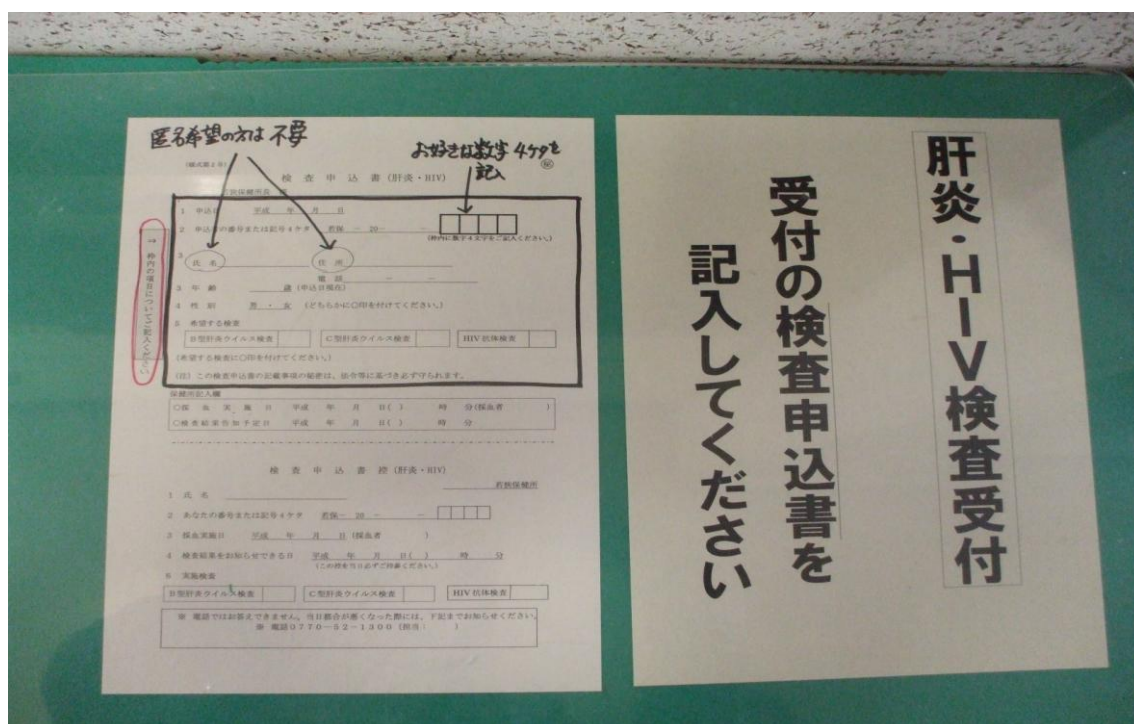 匿名希望の方は 不要
お好きな数字 4ケタを
記入
(様式第2号)
検 査 申 込 書 (肝炎・HIV)
若狭保健所長 様
1 申込日 平成 年 月 日
2 申込者の番号または記号4ケタ 若保 - 20- -
(枠内に数字4文字をご記入ください。)
3 氏 名 住 所
電 話 - -
3 年 齢 歳 (申込日現在)
4 性 別 男 ・ 女 (どちらかに○印を付けてください。)
5 希望する検査
B型肝炎ウイルス検査 C型肝炎ウイルス検査 HIV抗体検査
(希望する検査に○印を付けてください。)
(注) この検査申込書の記載事項の秘密は、法令等に基づき必ず守られます。
⇒ 枠内の項目についてご記入ください
保健所記入欄
○採 血 実 施 日 平成 年 月 日( ) 時 分(採血者 )
○検査結果告知予定日 平成 年 月 日( ) 時 分
検 査 申 込 書 控 (肝炎・HIV)
若狭保健所
1 氏 名
2 あなたの番号または記号4ケタ 若保- 20 - -
3 採血実施日 平成 年 月 日 (採血者 )
4 検査結果をお知らせできる日 平成 年 月 日( ) 時 分
(この控を当日必ずご持参ください。)
5 実施検査
B型肝炎ウイルス検査 C型肝炎ウイルス検査 HIV抗体検査
※ 電話ではお答えできません。当日都合が悪くなった際には、下記までお知らせください。
※ 電話0770-52-1300 (担当: )
肝炎・HIV検査受付
受付の検査申込書を
記入してください